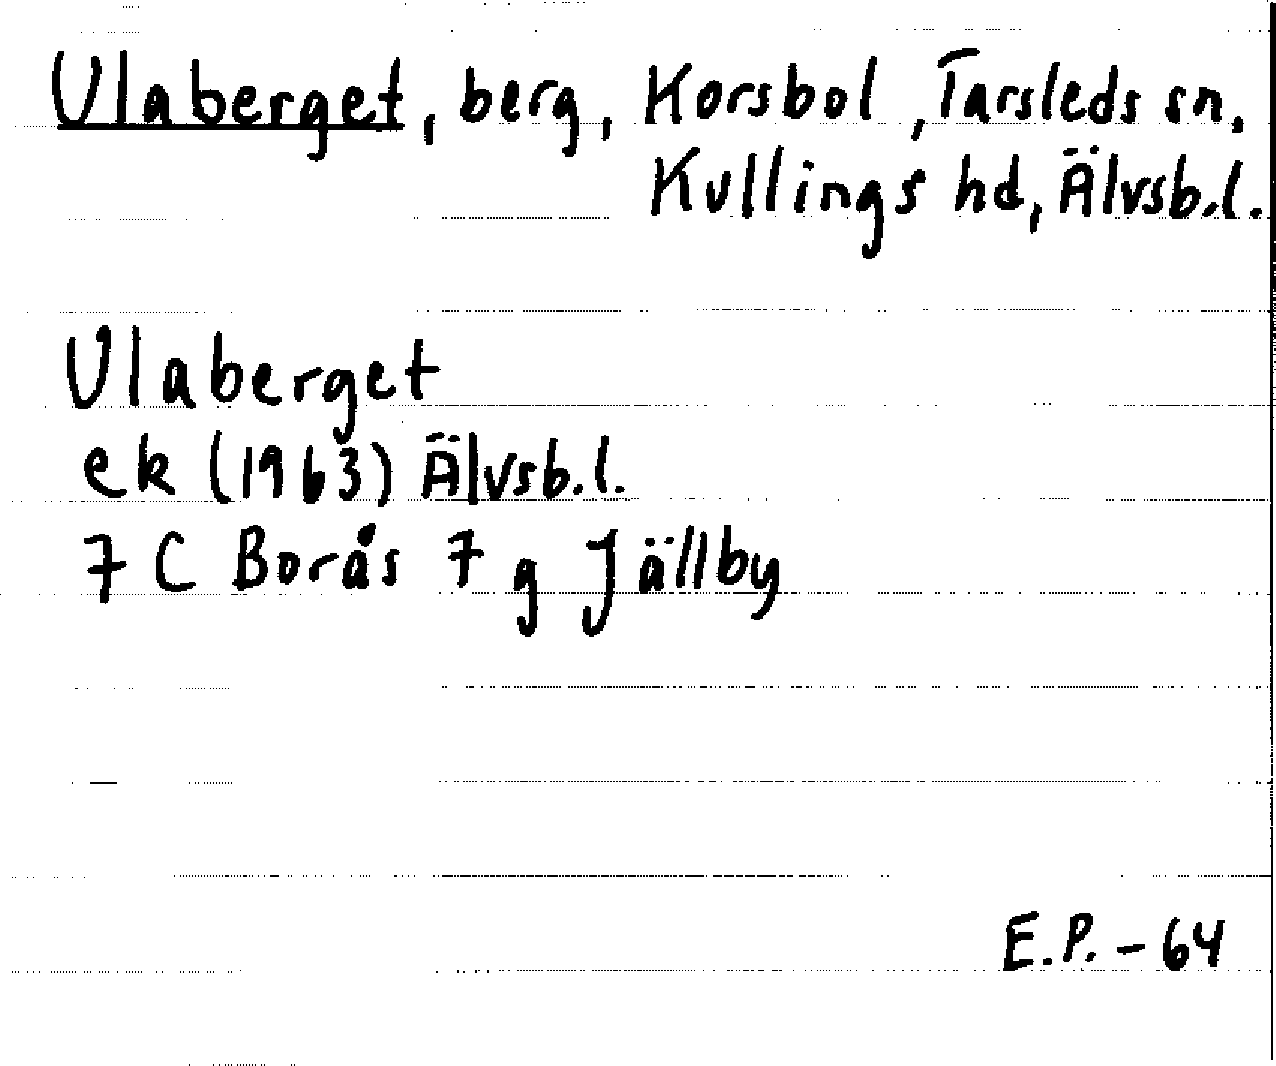 Ulaberget, berg, Korsbol, Tarsleds sn,
Kullings hd, Älvsb.l.
Ulaberget
ek (1963) Älvsb.l.
7 C Borås 7 g Jällby
E.P. - 64